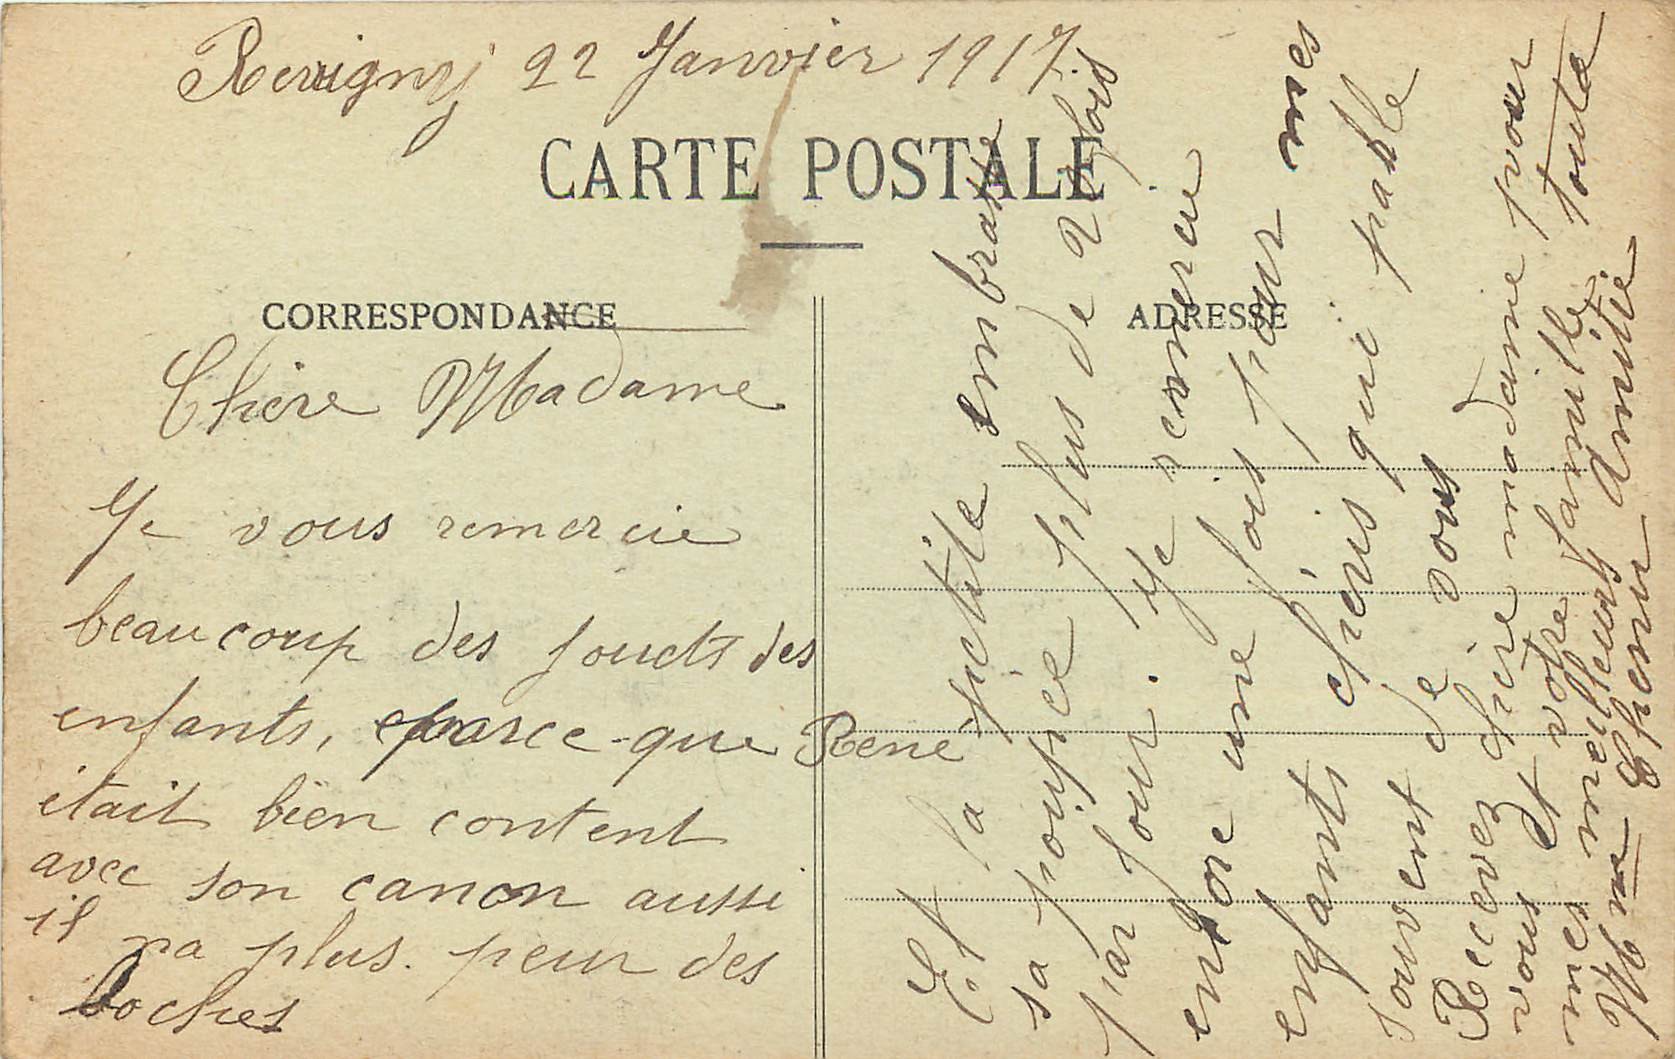 Revigny 22 Janvier 1917
CARTE POSTALE
CORRESPONDANCE
ADRESSE
Chère Madame
Je vous remercie
beaucoup des jouets des
enfants, parce-que René
était bien content
avec son canon aussi
il na plus. peur des
boches
Et la pictite embrasse
sa poupée plus de 20 fois
par jour. Je remercie
encore une fois pour mes
enfants chéris qui parle
souvent de vous
Recevez chère madame pour
vous et votre famille toute
mes meilleurs amitié
Mme